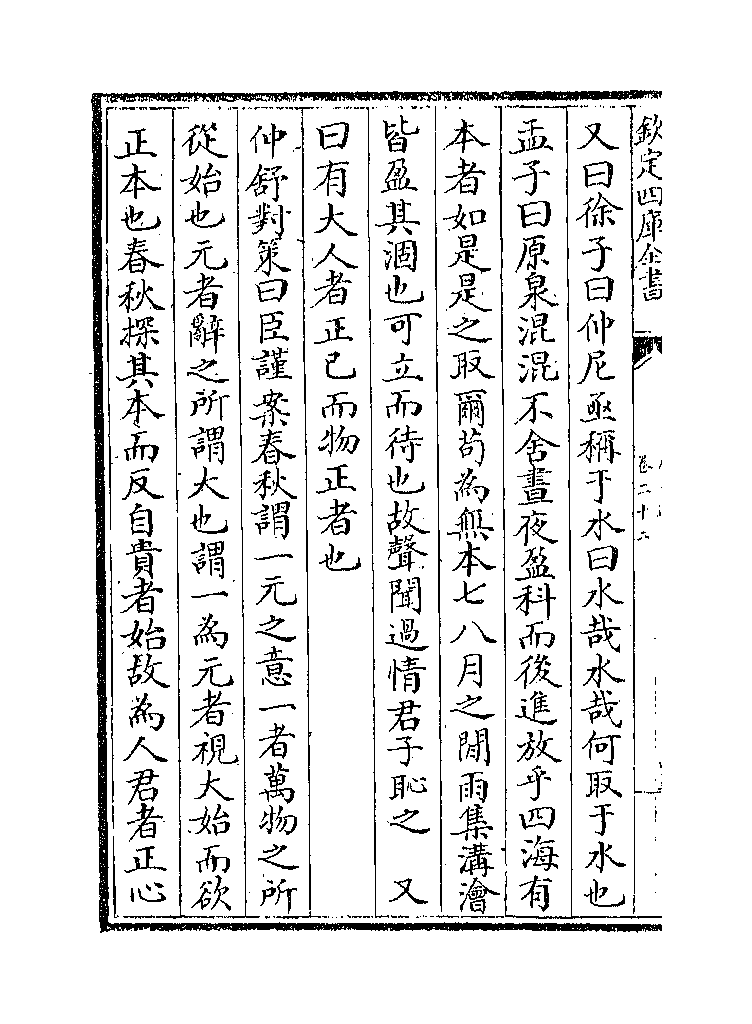 欽定四庫全書
卷二十二
又曰徐子曰仲尼亟稱于水曰水哉水哉何取于水也
孟子曰原泉混混不舍晝夜盈科而後進放乎四海有
本者如是是之取爾茍為無本七八月之間雨集溝澮
皆盈其涸也可立而待也故聲聞過情君子恥之　又
曰有大人者正已而物正者也
仲舒對策曰臣謹案春秋謂一元之意一者萬物之所
從始也元者辭之所謂大也謂一為元者視大始而欲
正本也春秋探其本而反自貴者始故為人君者正心